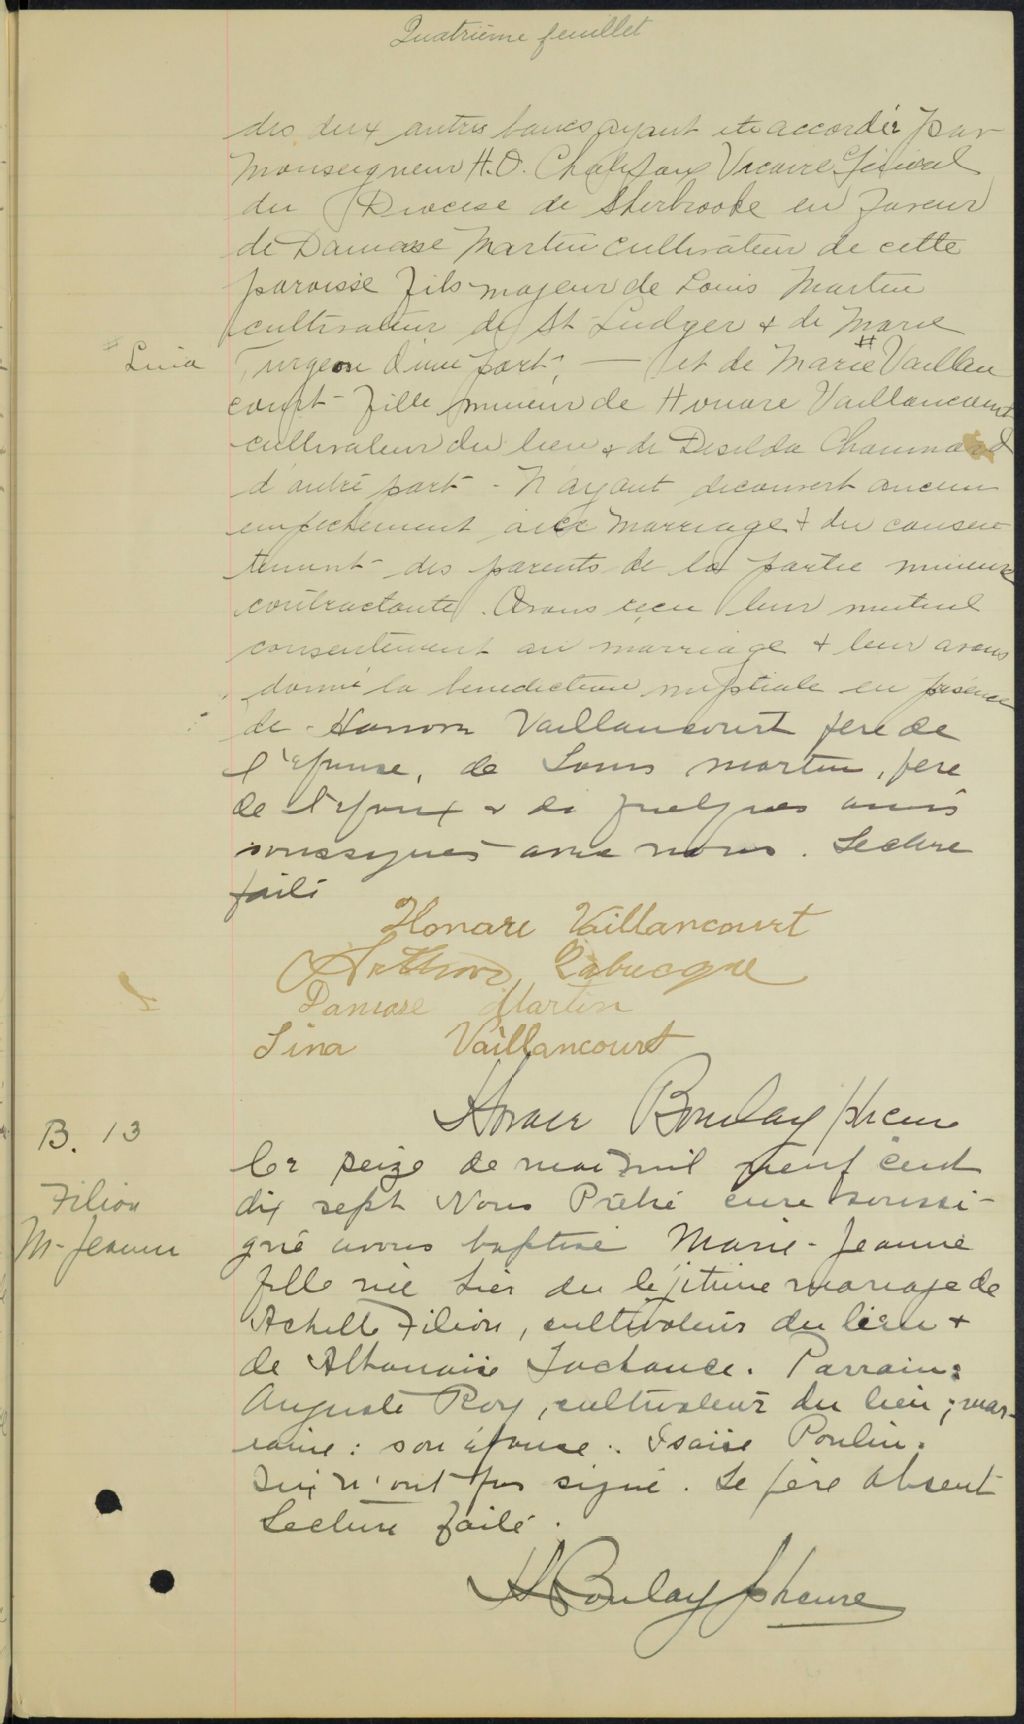 Quatrième feuillet
des deux autres bancs ayant été accordée par
Monseigneur H.O. Chalifoux Vicaire Général
du Diocèse de Sherbrooke en faveur
de Damase Martin cultivateur de cette
paroisse fils majeur de Louis Martin
cultivateur de St Ludger & de Marie
# Lina
Turgeon d'une part, — et de Marie # Vaillan
court fille mineur de Honoré Vaillancourt
cultivateur du lieu & de Desilda Chouinard
d'autre part - N'ayant decouvert aucun
empechement au marriage & du consen
tement des parents de la partie mineure
contractante. Avons reçu leur mutuel
consentement au marriage & leur avons
donné la benediction nuptiale en présence
de Honoré Vaillancourt père de
l'épouse, de Louis Martin, père
de l'époux & de quelques amis
soussignés avec nous. Lecture
faite
Honore Vaillancourt
Arthur Labrecque
Damase Martin
Lina Vaillancourt
Horace Boulay ptre cure
B. 13
Filion
M-Jeanne
Le seize de mai mil neuf cent
dix sept Nous Prêtre curé soussi-
gné avons baptisé Marie-Jeanne
fille née hier du légitime mariage de
Achille Filion, cultivateur du lieu &
de Athanaise Lachance. Parrain:
Auguste Roy, cultivateur du lieu; mar-
raine: son épouse: Isaïe Poulin.
qui n'ont pas signé. Le père absent
Lecture faite.
H Boulay ptre cure